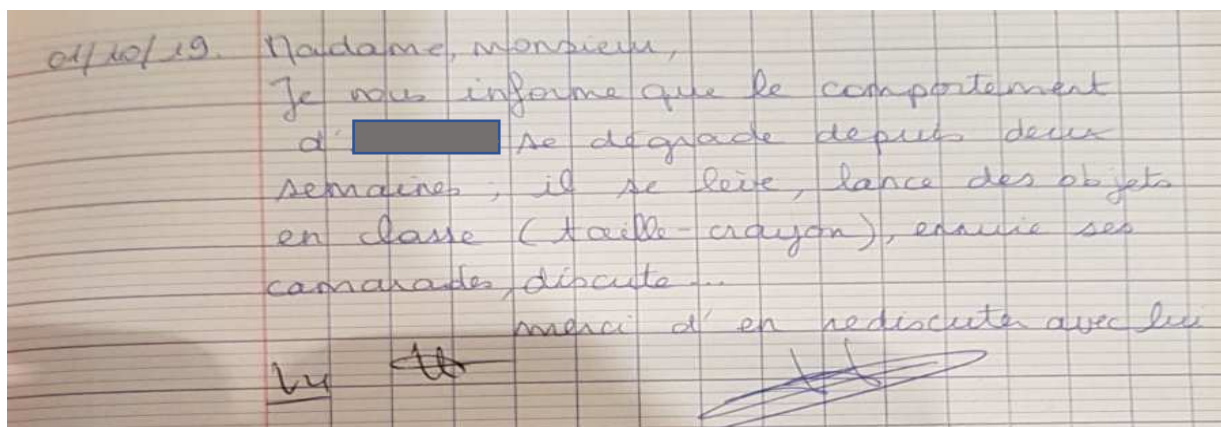 01/10/19. Madame, monsieur,
Je vous informe que le comportement
d' se dégrade depuis deux
semaines ; il se lève, lance des objets
en classe (taille-crayon), ennuie ses
camarades, discute...
merci d'en rediscuter avec lui
Vu